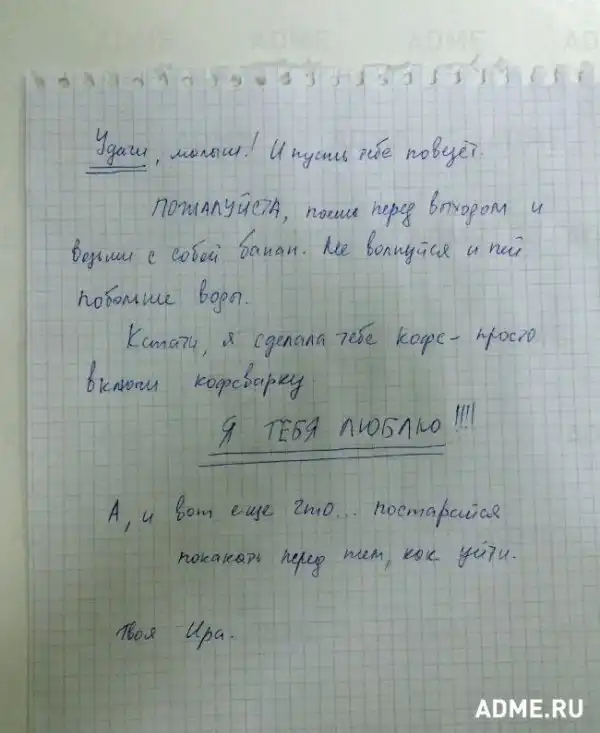 Удачи, малыш! И пусть тебе повезёт.
ПОЖАЛУЙСТА, поешь перед выходом и
возьми с собой банан. Не волнуйся и пей
побольше воды.
Кстати, я сделала тебе кофе - просто
включи кофеварку.
Я ТЕБЯ ЛЮБЛЮ!!!!
А, и вот еще что... постарайся
покакать перед тем, как уйти.
Твоя Ира.
ADME.RU